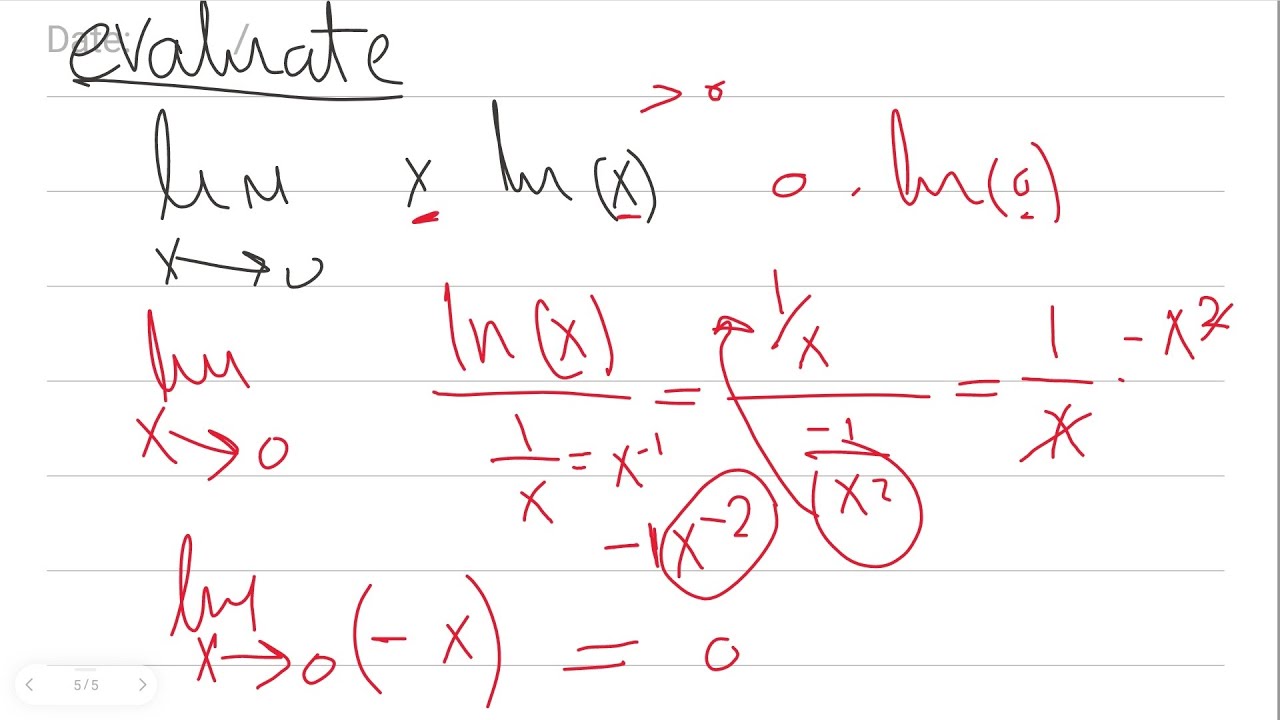 Date: /
evaluate
> 0
lim x ln(x) 0 . ln(0)
x → 0
lim ln(x) / (1/x = x⁻¹) = (1/x) / (-1/x²) = 1/x · - x²
x → 0
-1x⁻²
lim (- x) = 0
x → 0
5/5